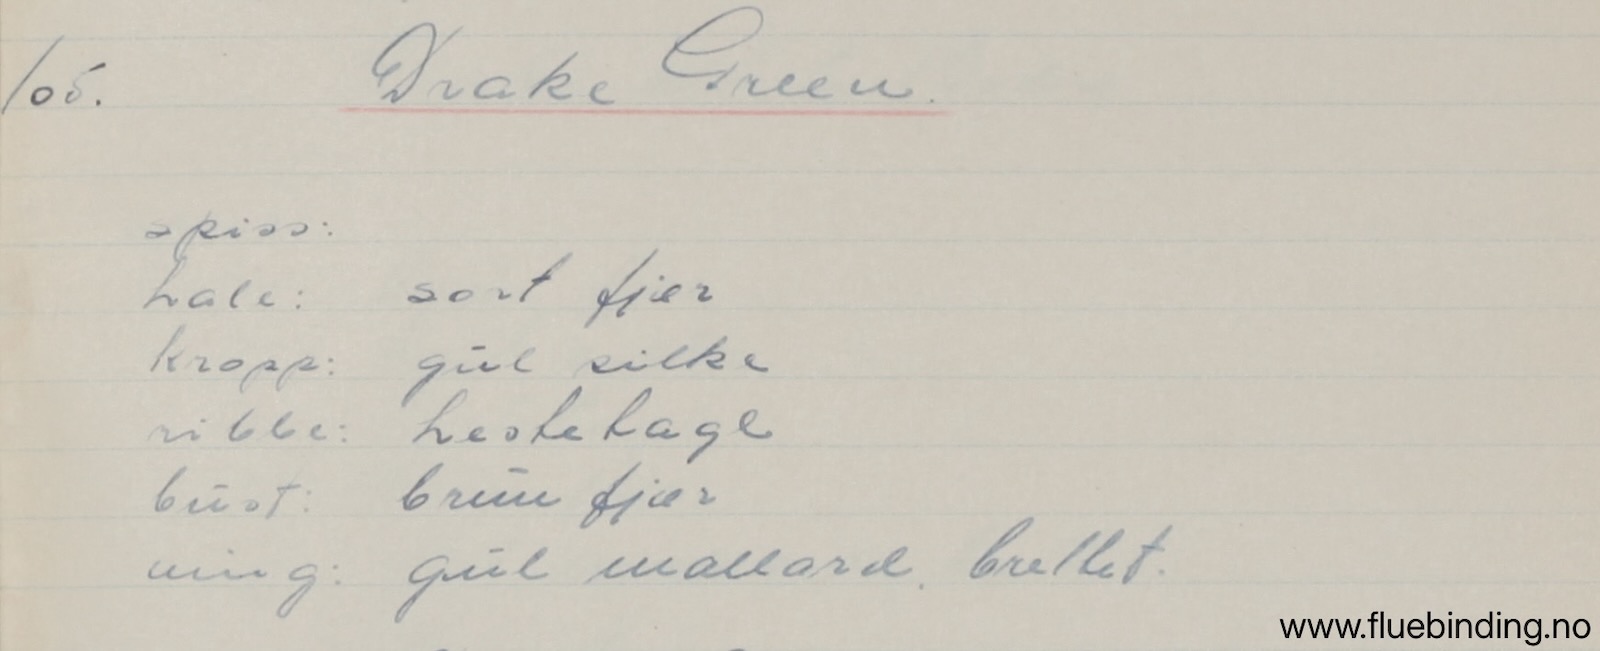 105. Drake Green.
spiss:
hale: sort fjær
kropp: gul silke
ribbe: hestetagl
bust: brun fjær
ving: gul mallard. brettet.
www.fluebinding.no